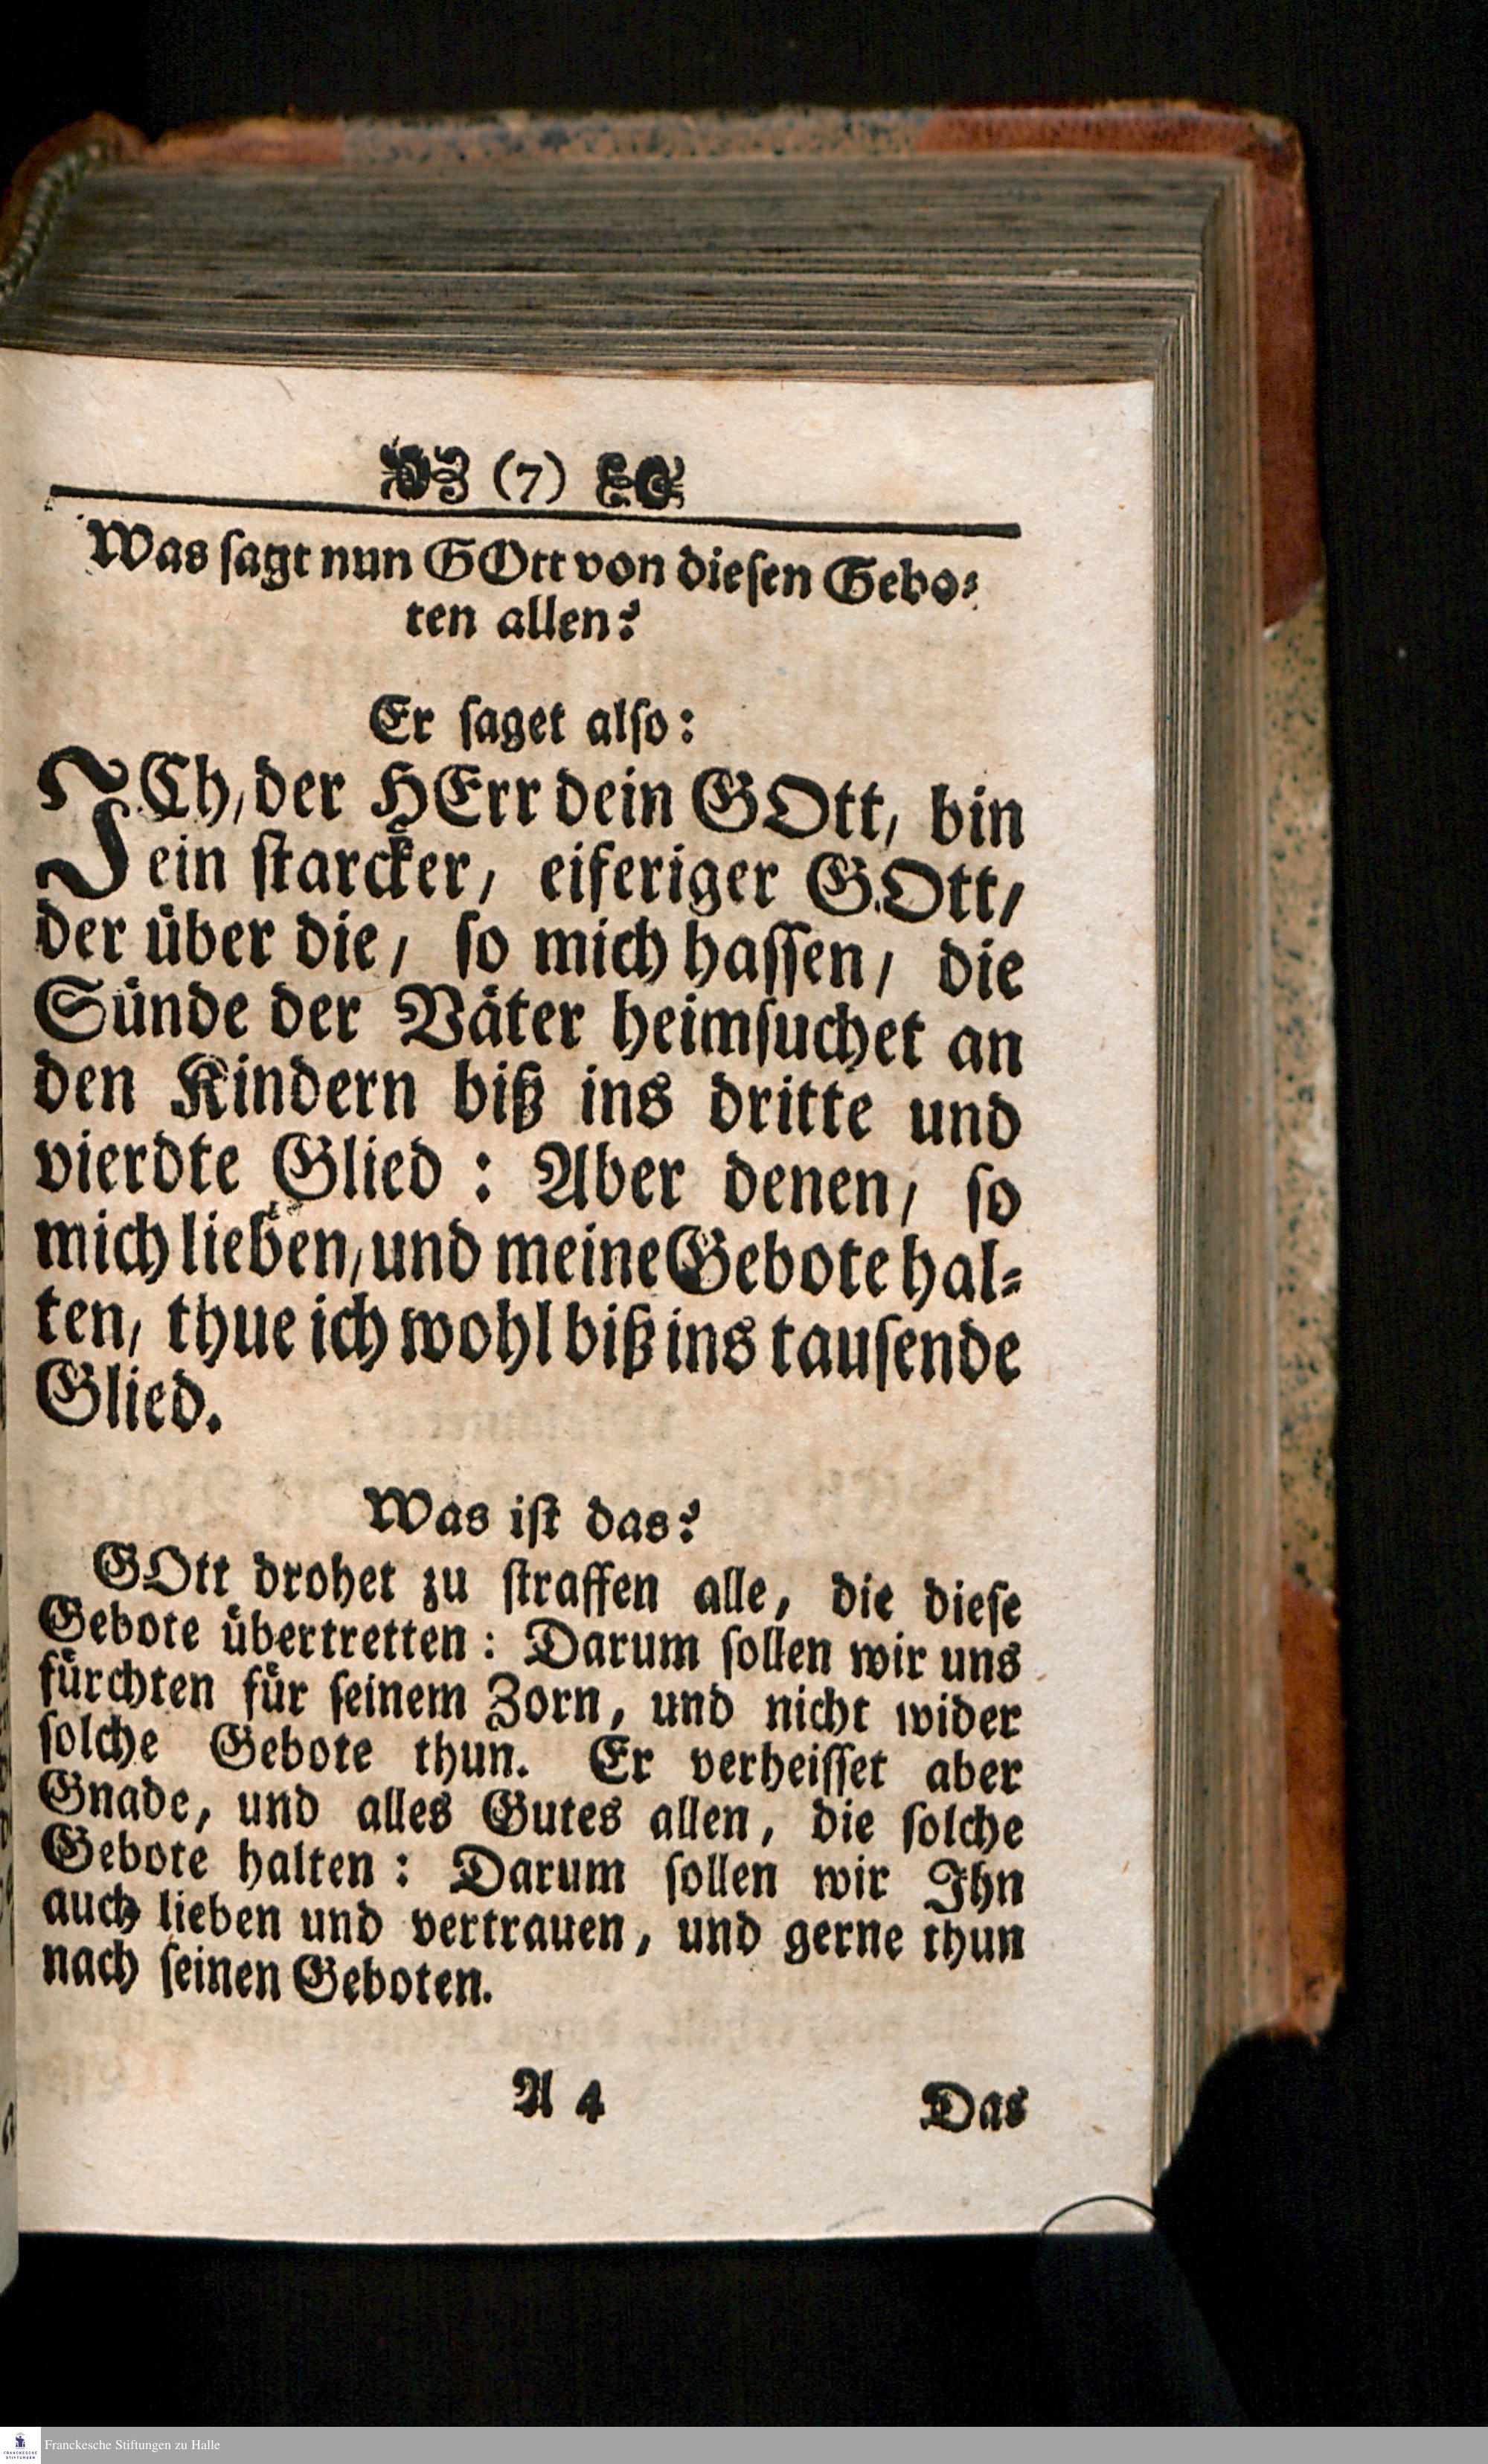 (7)
Was ſagt nun GOtt von dieſen Gebo⸗
ten allen?
Er ſaget alſo:
JCh, der HErr dein GOtt, bin
ein ſtarcker, eiferiger GOtt,
der über die, ſo mich haſſen, die
Sünde der Väter heimſuchet an
den Kindern biß ins dritte und
vierdte Glied: Aber denen, ſo
mich lieben, und meine Gebote hal⸗
ten, thue ich wohl biß ins tauſende
Glied.
Was iſt das?
GOtt drohet zu ſtraffen alle, die dieſe
Gebote übertretten: Darum ſollen wir uns
fürchten für ſeinem Zorn, und nicht wider
ſolche Gebote thun. Er verheiſſet aber
Gnade, und alles Gutes allen, die ſolche
Gebote halten: Darum ſollen wir Ihn
auch lieben und vertrauen, und gerne thun
nach ſeinen Geboten.
A 4 Das
Franckesche Stiftungen zu Halle